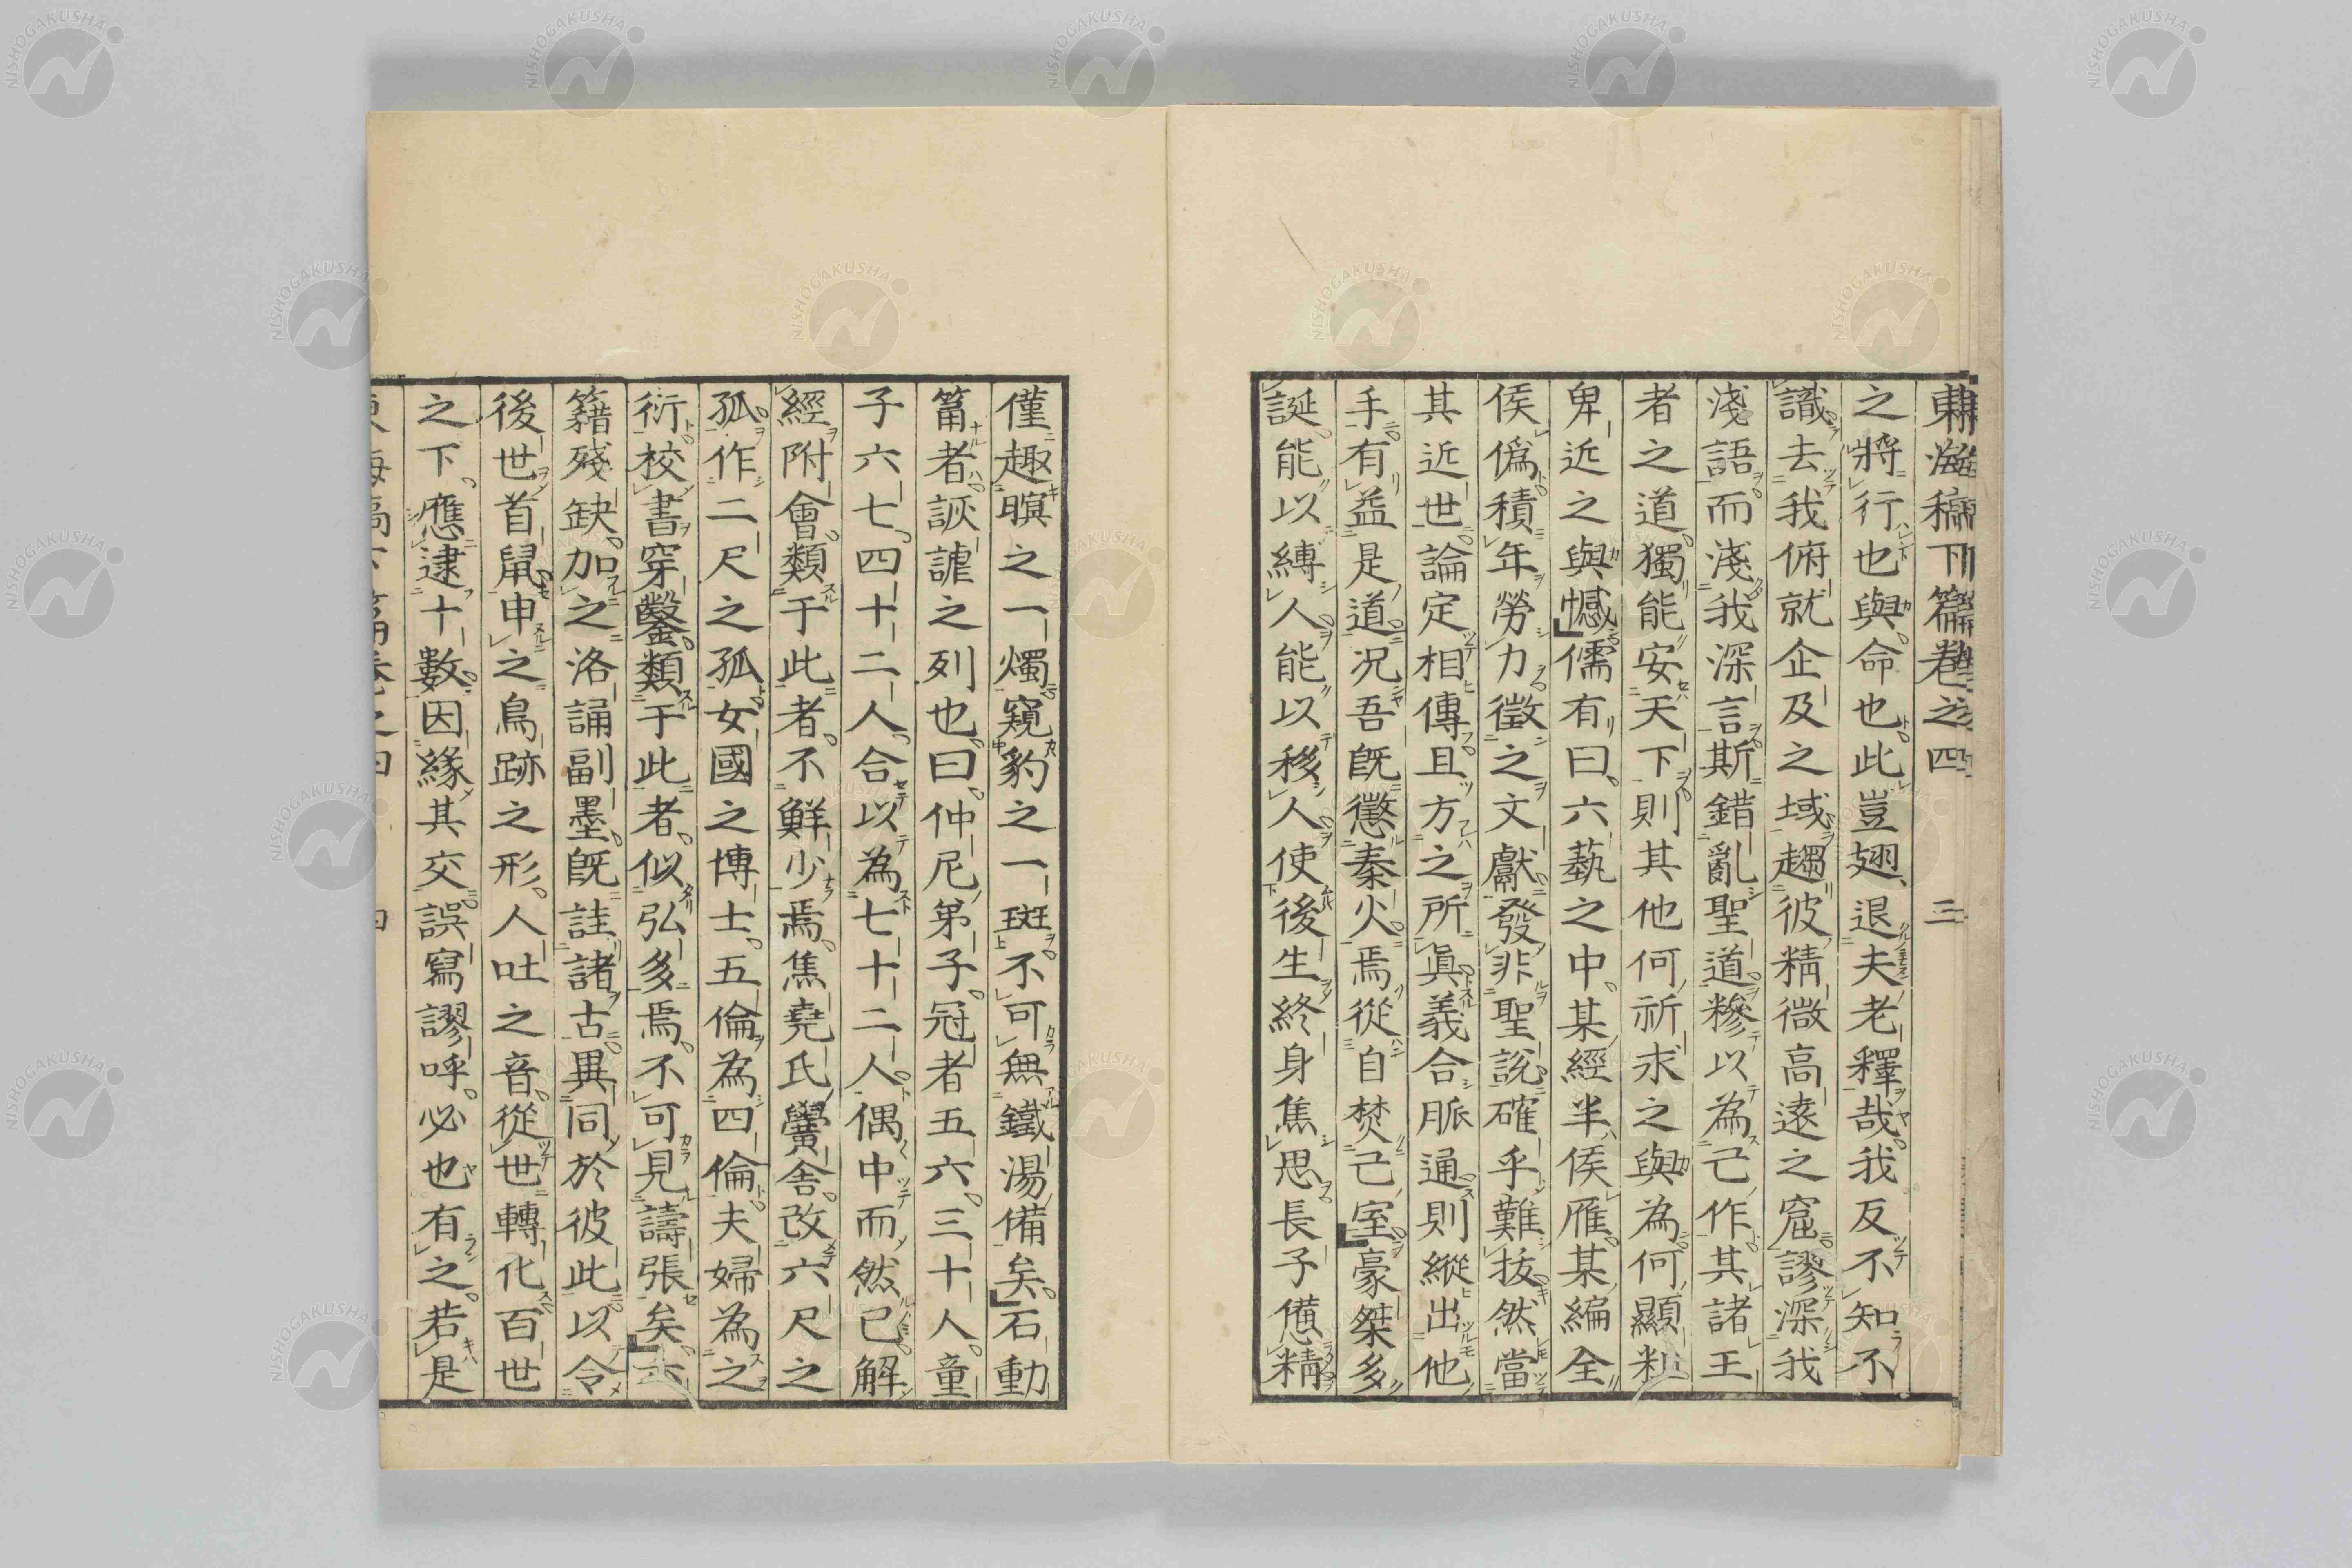 東海稿下篇卷之四 三
之將行也與命也此豈翅退夫老釋哉我反不知不
識去我俯就企及之域趨彼精微高遠之窟謬深我
淺語而淺我深言斯錯亂聖道糝以為己作其諸王
者之道獨能安天下則其他何祈求之與為何顯粃
卑近之與憾儒有曰六藝之中某經半侯雁某編全
侯偽積年勞力徵之文獻發非聖說確乎難拔然當
其近世論定相傳且方之所眞義合脈通則縱出他
手有益是道况吾既懲秦火焉從自焚己室豪桀多
誕能以縛人能以移人使後生終身焦思長子憊精
僅趣暝之一燭窺豹之一斑不可無鐵湯備矣石動
篇者詼謔之列也曰仲尼弟子冠者五六三十人童
子六七四十二人合以為七十二人偶中而然已解
經附會類于此者不鮮少焉焦堯氏黌舍改六尺之
孤作二尺之孤女國之博士五倫為四倫夫婦為之
衍校書穿鑿類于此者似弘多焉不可見譸張矣
籍殘缺加之洛誦副墨既詿諸古異同於彼此以令
後世首鼠申之鳥跡之形人吐之音從世轉化百世
之下應逮十數因緣其交誤寫謬呼必也有之若是